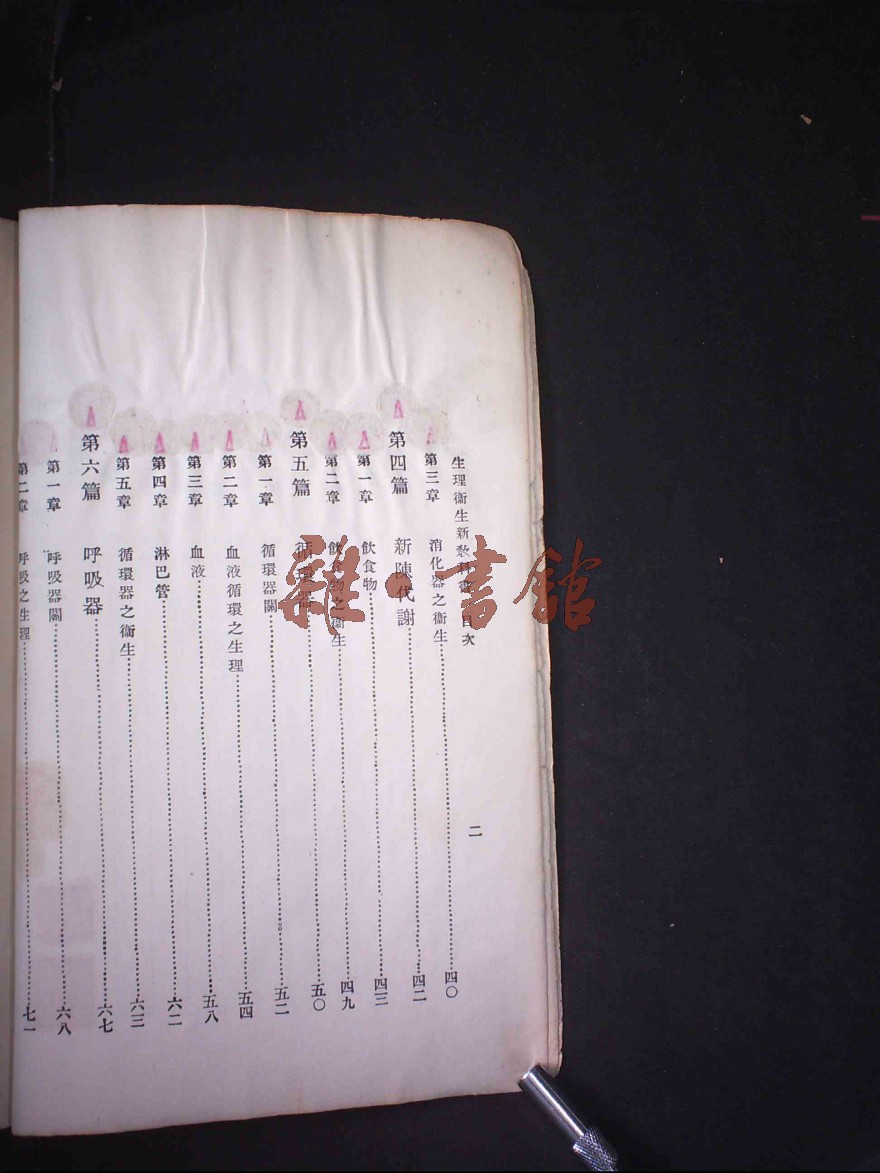 生理衞生新敎科書 目次 二
第三章 消化器之衞生 四〇
第四篇 新陳代謝 四二
第一章 飲食物 四三
第二章 飲食物之衞生 四九
第五篇 循環器 五〇
第一章 循環器關 五二
第二章 血液循環之生理 五四
第三章 血液 五八
第四章 淋巴管 六二
第五章 循環器之衞生 六三
第六篇 呼吸器 六七
第一章 呼吸器關 六八
第二章 呼吸之生理 七一
雜·書館